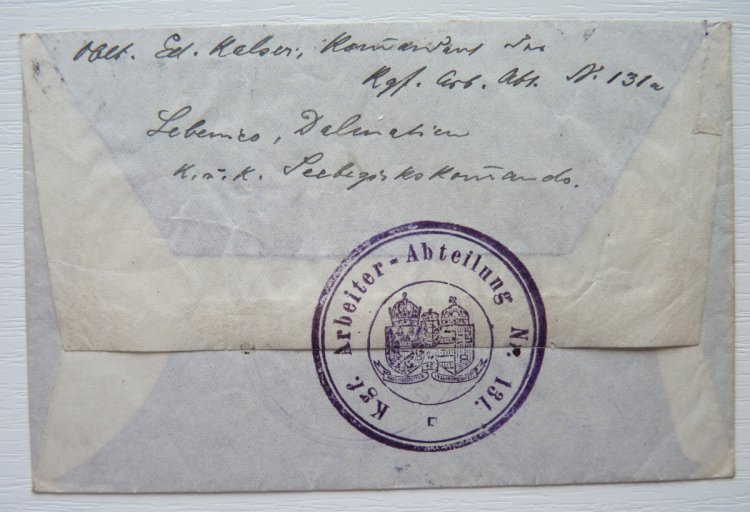 Oblt. Ed. Kalser, Komandant der
Kgf. Arb. Abt. N. 131a
Sebenico, Dalmatien
K. u. K. Seebezirkskomando.
Kgf. Arbeiter-Abteilung Nr. 131.